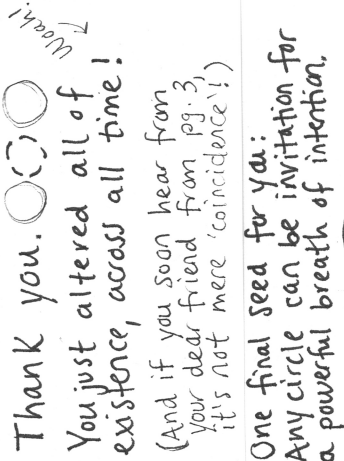 Thank you.
Woah!
You just altered all of
existence, across all time!
(And if you soon hear from
your dear friend from pg. 3,
it's not mere 'coincidence'!)
One final seed for you:
Any circle can be invitation for
a powerful breath of intention.